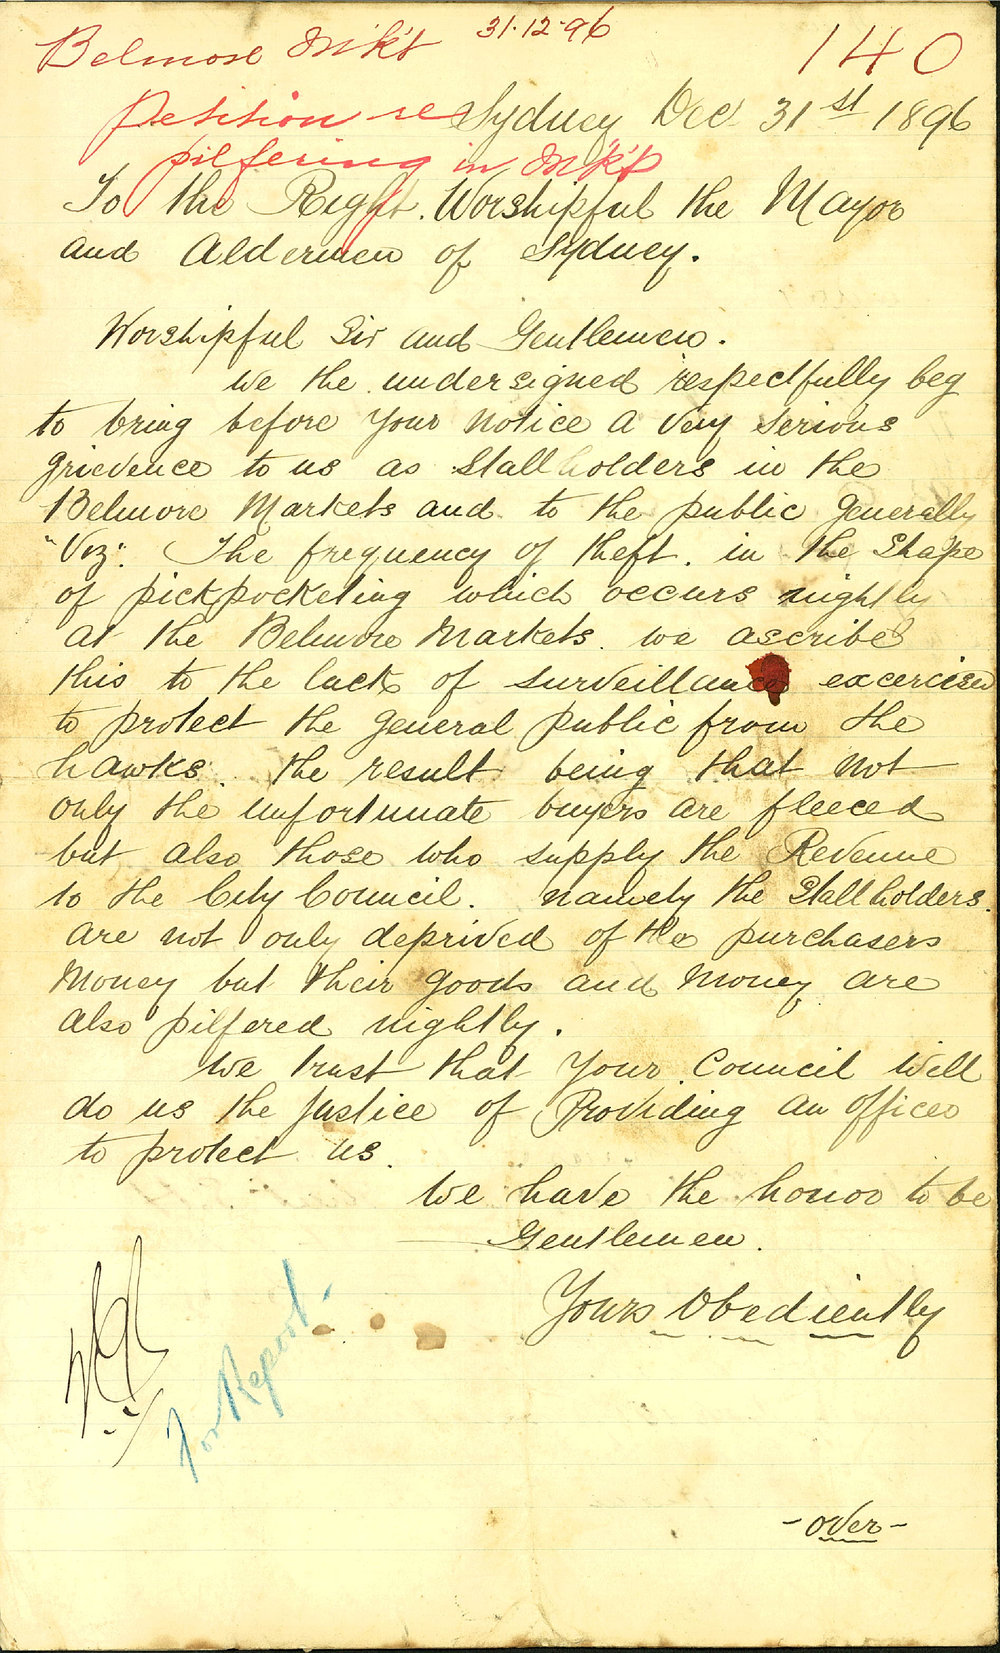 Belmore Mk't 31.12.96
140
Petition re
pilfering in Mk't
Sydney Dec 31st 1896
To the Right Worshipful the Mayor
and Aldermen of Sydney.
Worshipful Sir and Gentlemen.
We the undersigned respectfully beg
to bring before your notice a very serious
grievence to us as Stall holders in the
Belmore Markets and to the public generally
"Viz": The frequency of theft in the shape
of pickpocketing which occurs nightly
at the Belmore Markets. we ascribe
this to the lack of surveillance excercised
to protect the general public from the
hawks. the result being that not
only the unfortunate buyers are fleeced
but also those who supply the Revenue
to the City Council. namely the Stallholders.
are not only deprived of the purchasers
Money but their goods and money are
also pilfered nightly.
We trust that Your Council Will
do us the justice of Providing an officer
to protect us.
We have the honor to be
Gentlemen.
Yours Obediently
For Report.
-over-